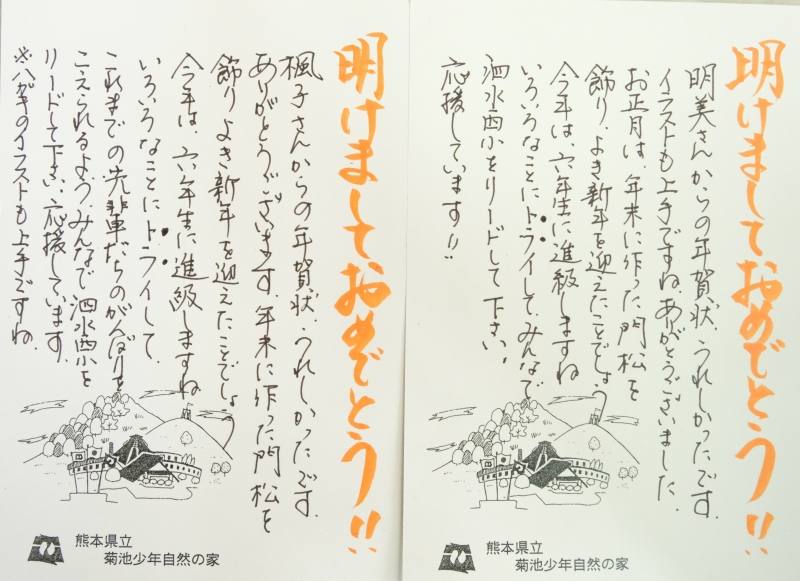 明けましておめでとう!!
楓子さんからの年賀状、うれしかったです。
ありがとうございます。年末に作った門松を
飾り、よき新年を迎えたことでしょう
今年は、六年生に進級しますね
いろいろなことにトライして、
これまでの先輩たちのがんばりを
こえられるよう、みんなで泗水西小を
リードして下さい。応援しています。
※ハガキのイラストも上手ですね。
熊本県立
菊池少年自然の家
明けましておめでとう!!
明美さんからの年賀状、うれしかったです。
イラストも上手ですね。ありがとうございました。
お正月は、年末に作った門松を
飾り、よき新年を迎えたことでしょう
今年は、六年生に進級しますね
いろいろなことにトライして、みんなで
泗水西小をリードして下さい。
応援しています!!
熊本県立
菊池少年自然の家